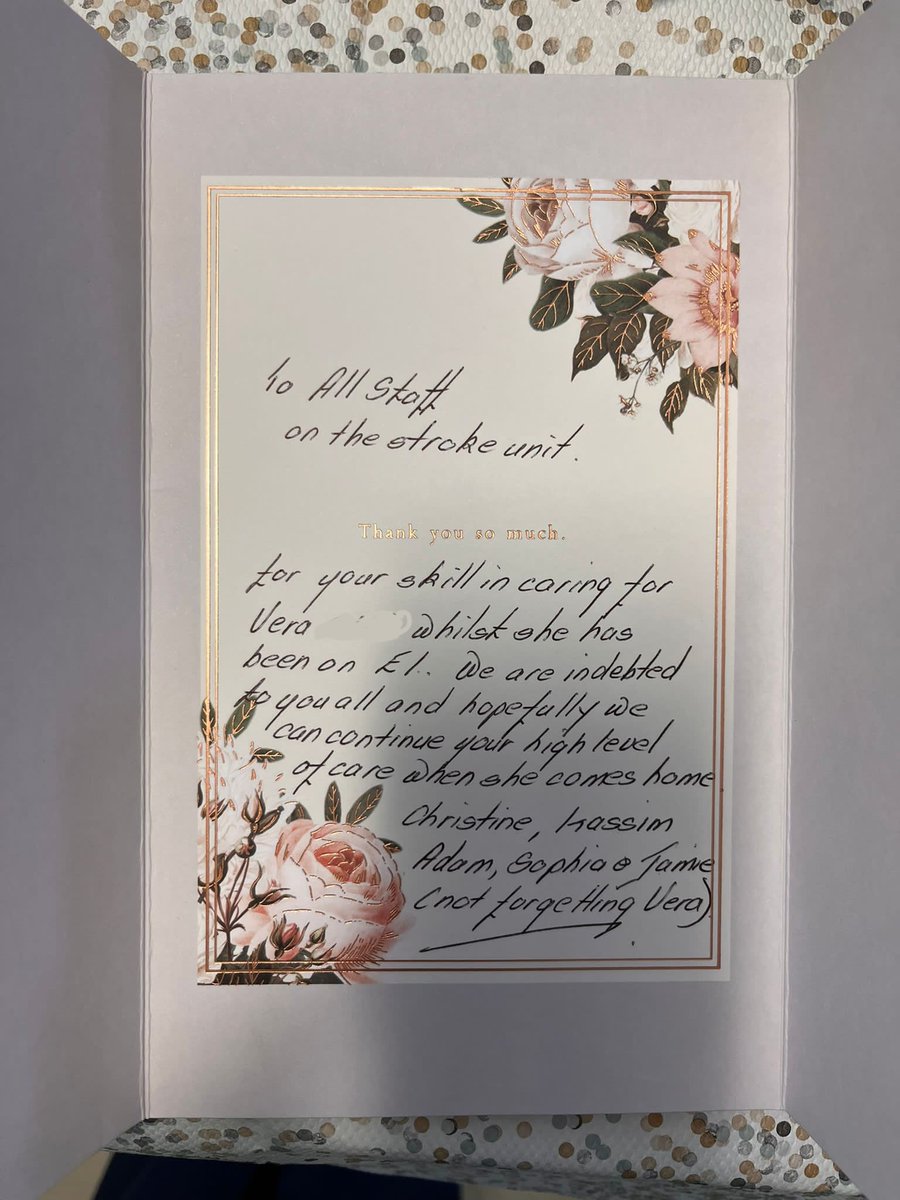 to All Staff
on the stroke unit.
Thank you so much.
for your skill in caring for
Vera whilst she has
been on E1.. We are indebted
to you all and hopefully we
can continue your high level
of care when she comes home
Christine, Kassim
Adam, Sophia & Jamie
(not forgetting Vera)